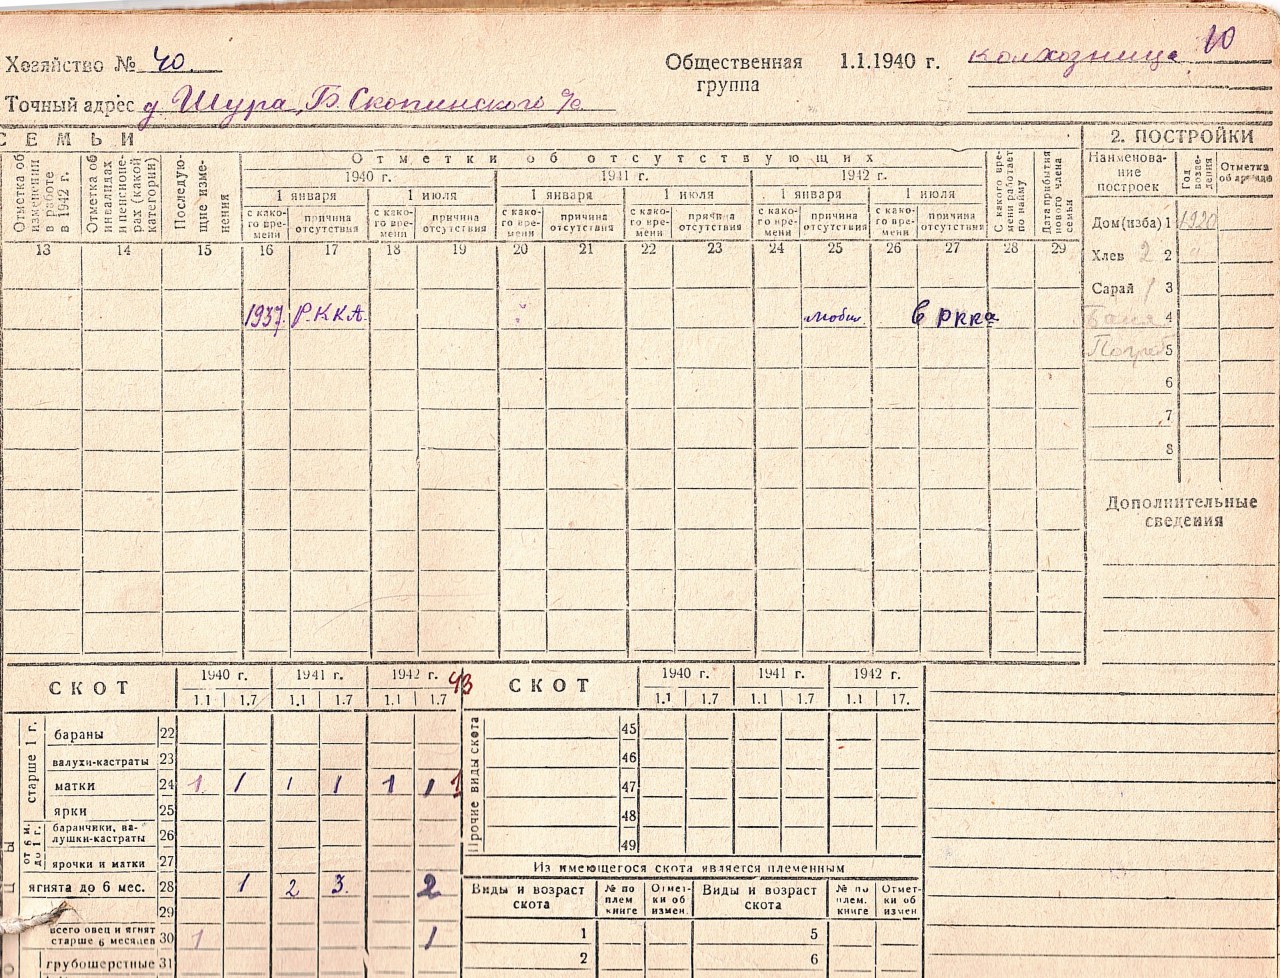 10
Хозяйство № 40.
Общественная группа 1.1.1940 г. колхозница
Точный адрес д Шура, Б. Скопинского с/с
СЕМЬИ
2. ПОСТРОЙКИ
Отметка об изменении в работе в 1942 г.
Отметка об инвалидах и пенсионерах (какой категории)
Последующие изменения
Отметки об отсутствующих
1940 г. 1941 г. 1942 г.
1 января 1 июля 1 января 1 июля 1 января 1 июля
с какого времени причина отсутствия с какого времени причина отсутствия с какого времени причина отсутствия с какого времени причина отсутствия с какого времени причина отсутствия с какого времени причина отсутствия
С какого времени работает по найму
Дата прибытия нового члена семьи
Наименование построек Год возведения Отметка об аренде
13 14 15 16 17 18 19 20 21 22 23 24 25 26 27 28 29
1937. Р.ККА. мобил. в РККа
Дом (изба) 1 1920
Хлев 2 2
Сарай 1 3
Баня 4
Погреб 5
6
7
8
Дополнительные сведения
СКОТ 1940 г. 1941 г. 1942 г. 43
1.1 1.7 1.1 1.7 1.1 1.7
старше 1 г.
бараны 22
валухи-кастраты 23
матки 24 1 1 1 1 1 1 1
ярки 25
от 6 м. до 1 г.
баранчики, валушки-кастраты 26
ярочки и матки 27
ягнята до 6 мес. 28 1 2 3. 2
29
всего овец и ягнят старше 6 месяцев 30 1 1
грубошерстные 31
СКОТ 1940 г. 1941 г. 1942 г.
1.1 1.7 1.1 1.7 1.1 17.
Прочие виды скота
45
46
47
48
49
Из имеющегося скота является племенным
Виды и возраст скота № по плем книге Отметки об измен. Виды и возраст скота № по плем. книге Отметки об измен
1 5
2 6